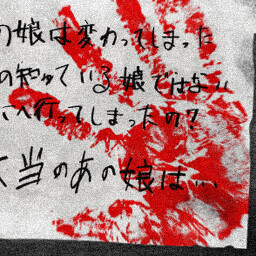 の娘は変わってしまった
の知っている娘ではない
へ行ってしまったの?
当のあの娘は...